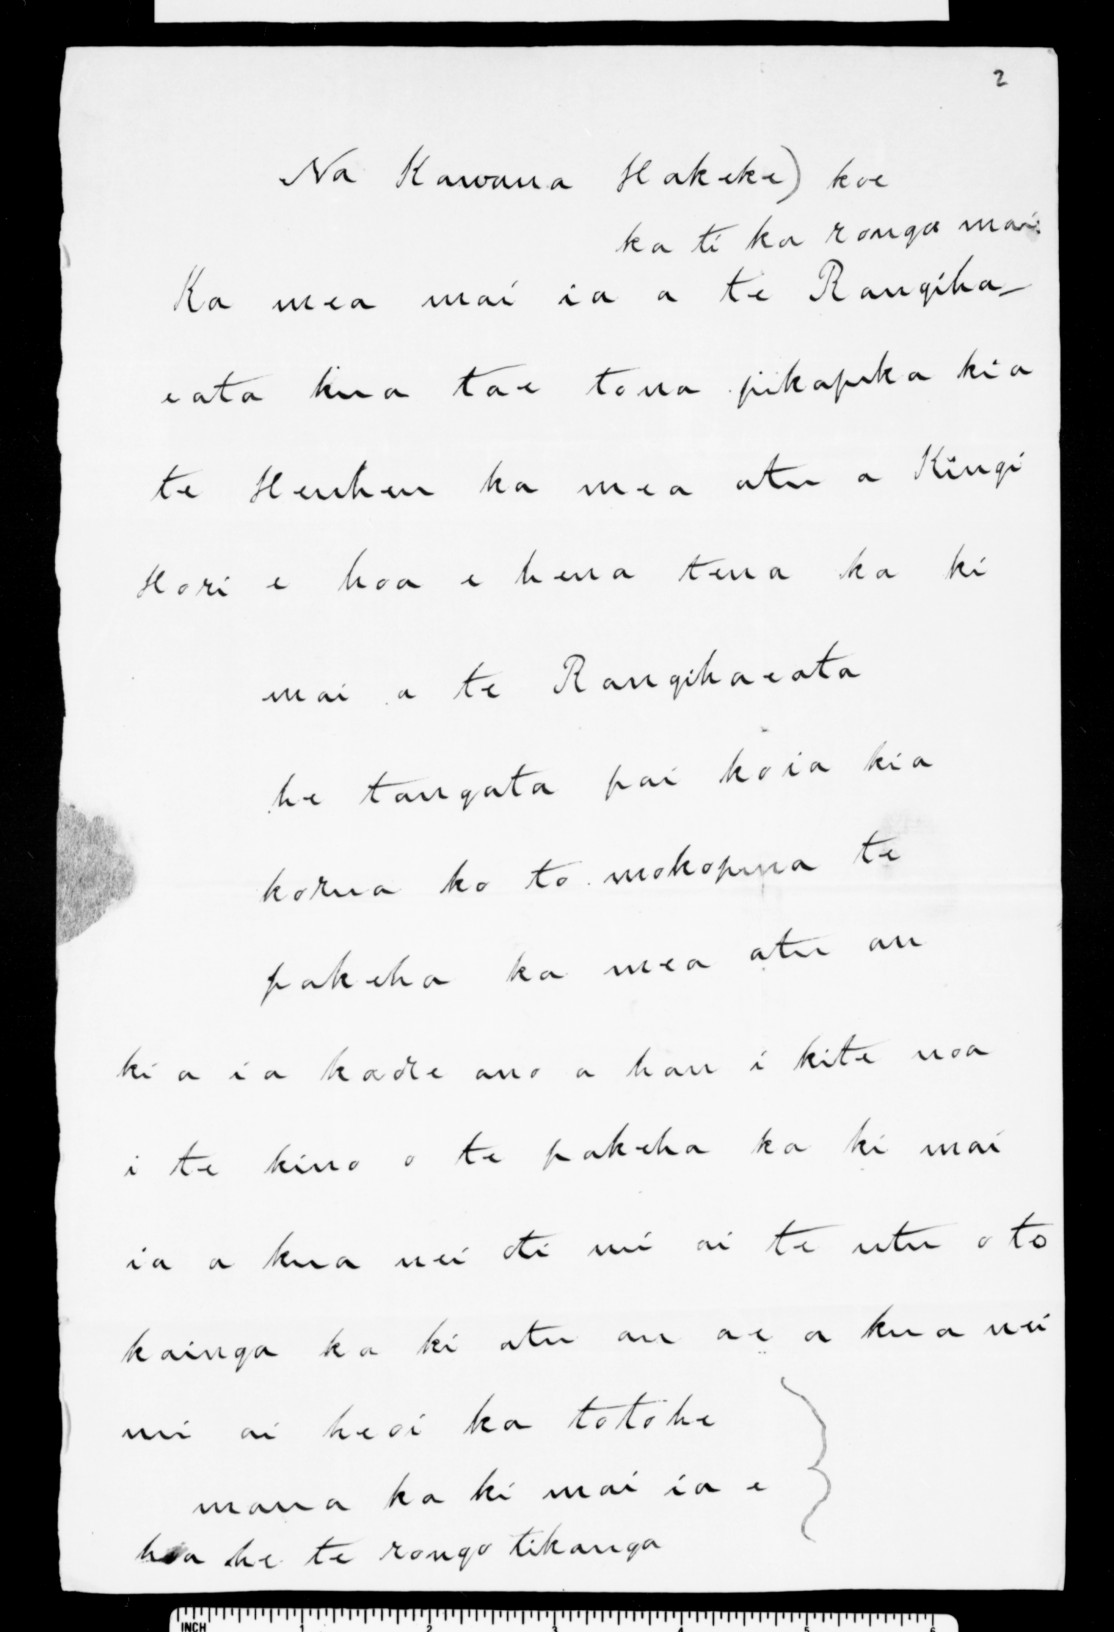 2
Na Kawana Hakeke) koe
ka ti ka rongo mai
Ka mea mai ia a te Rangiha-
eata kua tae tona pukapuka kia
te Heuheu ka mea atu a Kingi
Hori e hoa e hena tena ka ki
mai a te Rangihaeata
he tangata pai koia kia
korua ko to mokopuna te
pakeha ka mea atu au
ki a ia kaore ano a hau i kite noa
i te kino o te pakeha ka ki mai
ia a kua nei oti nui ai te utu o to
kainga ka ki atu au ae a kua nei
nui ai heoi ka totohe
maua ka ki mai ia e
hoa he te rongo tikanga
INCH 1 2 3 4 5 6